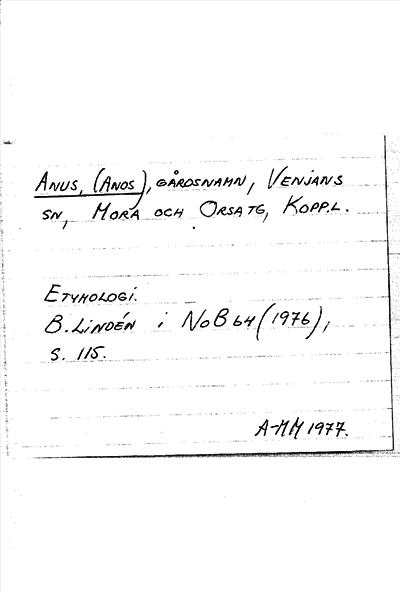 ANUS, (ANOS), GÅRDSNAMN, VENJANS
SN, MORA OCH ORSA TG, KOPP.L.
ETYMOLOGI.
B. LINDÉN i NoB 64 (1976),
S. 115.
A-MM 1977.